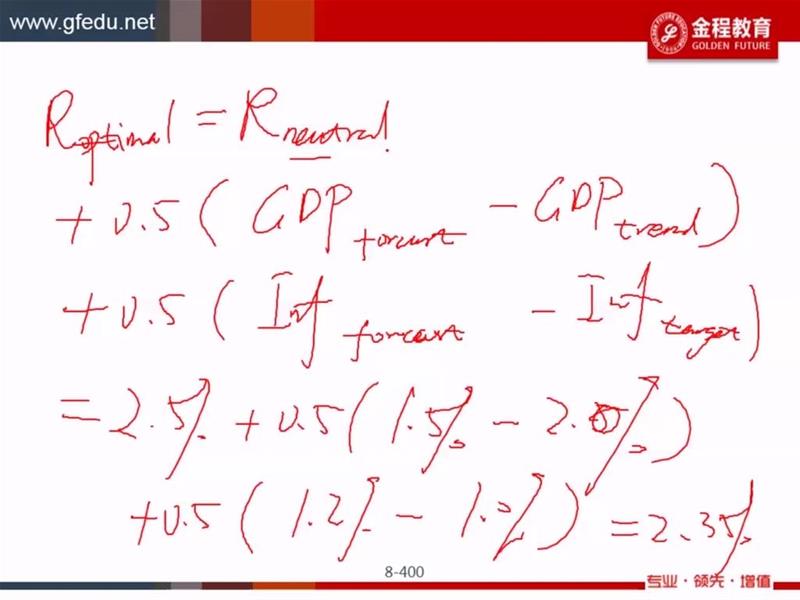 www.gfedu.net
金程教育
GOLDEN FUTURE
R optimal = R neutral
+ 0.5 ( GDP forcast - GDP trend )
+ 0.5 ( Inf forcast - Inf target )
= 2.5% + 0.5 ( 1.5% - 2.0% )
+ 0.5 ( 1.2% - 1.0% ) = 2.35%
8-400
专业·领先·增值